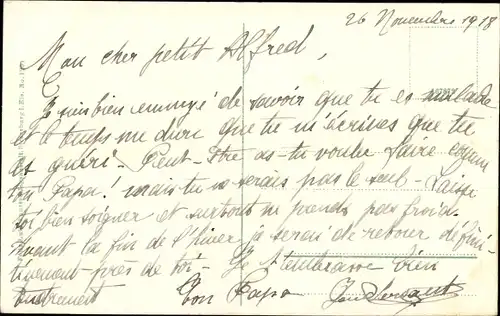 26 Novembre 1918
Mon cher petit Alfred,
Je suis bien ennuyé de savoir que tu es malade
et le temps me dure que tu m'écrives que tu
es guéri. Peut-être as-tu voulu faire comme
ton Papa! mais tu ne serais pas le seul. Laisse
toi bien soigner et surtout ne prends pas froid.
Avant la fin de l'hiver je serai de retour défini-
tivement près de toi. Je t'embrasse bien
tendrement Ton Papa